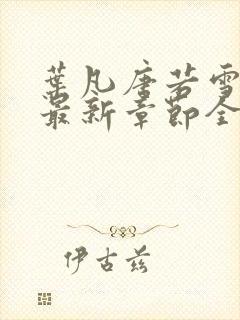 叶凡唐若雪
最新章节全
伊古兹